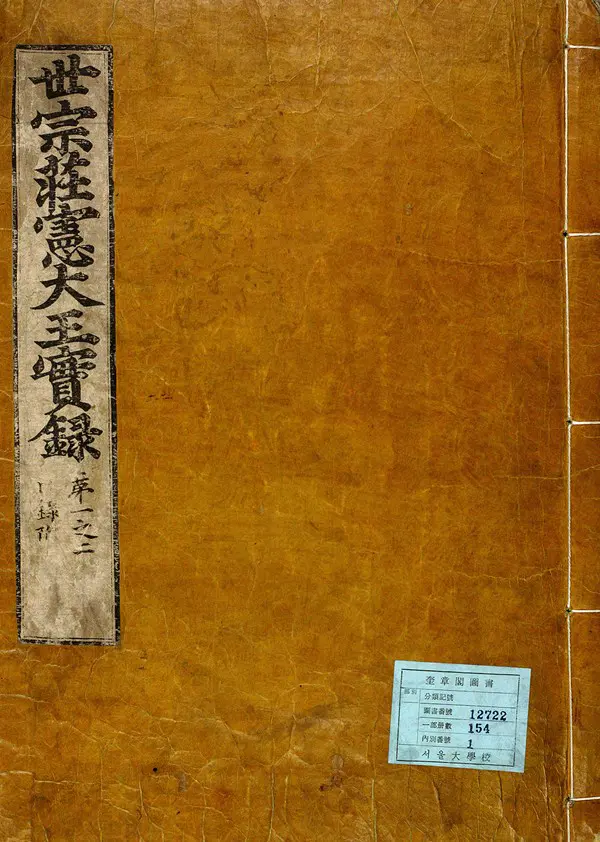 世宗莊憲大王實錄
第一之二
目錄附
奎章閣圖書
部別
分類記號
圖書番號 12722
一部册數 154
內別番號 1
서울大學校